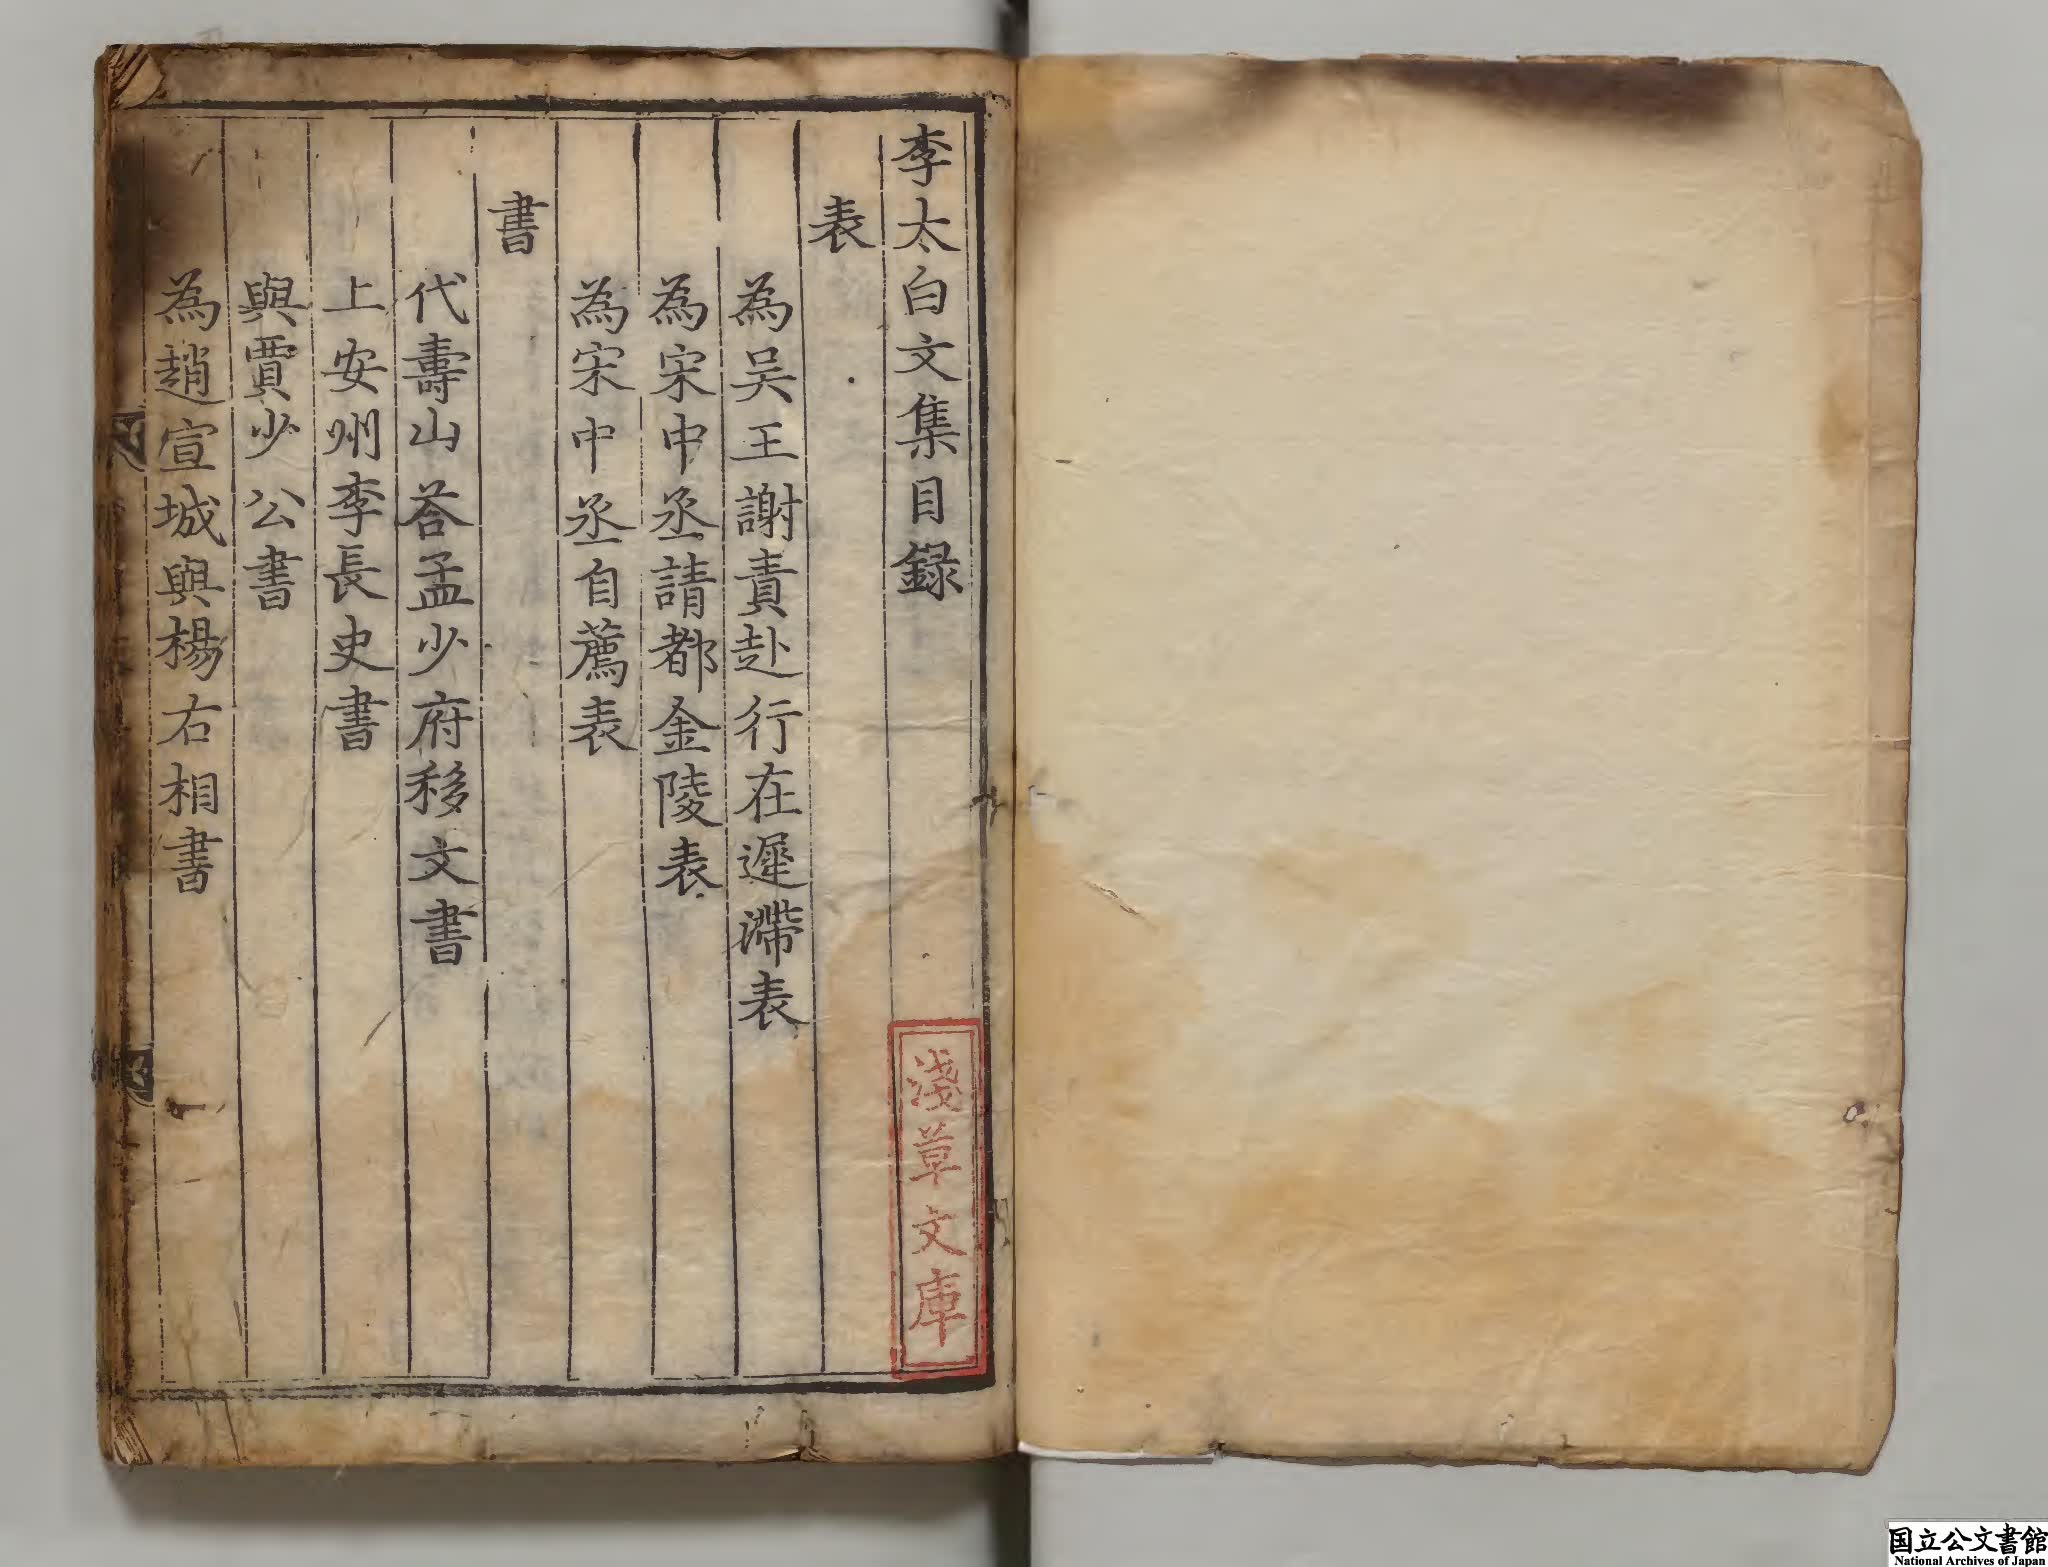 李太白文集目録
表
為吴王謝責赴行在遲滯表
為宋中丞請都金陵表
為宋中丞自薦表
書
代壽山荅孟少府移文書
上安州李長史書
與賈少公書
為趙宣城與楊右相書
淺草文庫
国立公文書館
National Archives of Japan